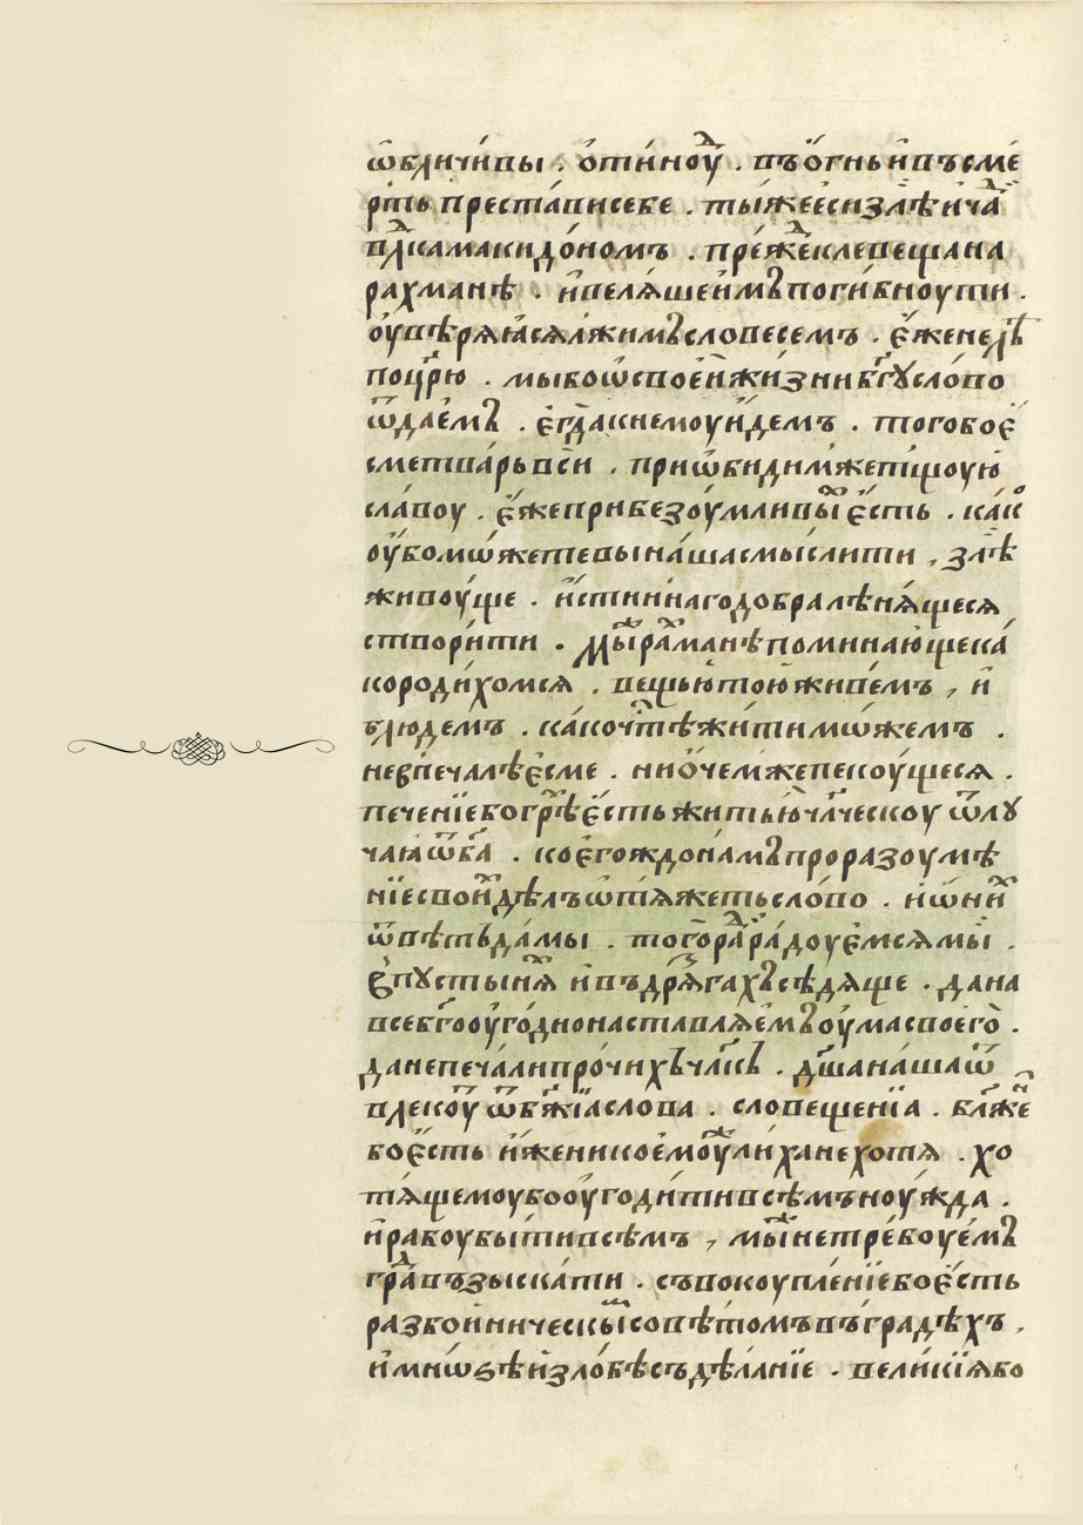 ѡ҆бличи́вы . ѻ҆ти́ноуⷣ . въѻ҆́гньи҆въсме́
рть преста́висебе . ты́жееси злѣ̀ и҆ча́ⷣ
влⷣкамакидо́номъ . пре́жⷣеклевещана
рахмане . и҆веля́шеи҆мъпоги́бноути .
оу҆вѣряꙗсялжи́мъсловесемъ . є҆́женелѣ́ⷮ
поцр҃ю . мыбоѡ҆своє́йжи́зниб҃гꙋсло́во
ѿдаємъ . є҆гдакнемоуи́демъ . тогобоє҆
сметва́рьвси . приѡ҆бидимжетщоую҆
сла́воу . є҆́жеприбезоу́мливыⷯє҆́сть . ка́кᲂ
оу҆бомѡ́жетевына́шасмы́слити , злѣ̀
живоу́ще . и҆́стиннагодобралѣня́щеся
створи́ти . мы́ⷤраⷯманѣпоминаю́щека́
короди́хомся . вещью́тою живе́мъ , и҆
блюдемъ . ка́кочтⷭ҇ѣжи́тимѡ́жемъ .
невпечалѣє҆сме . ниѻ҆че́мжепекоу́щеся .
печенїебогрⷣѣє҆́сть житью̀члч҃ческоу ѿлꙋ
чаꙗѿб҃а . коє҆гождона́мъпроразоумѣ
нїесвоиⷯдѣлъѡ҆тя́жетьсло́во . и҆ѡ҆ниⷯ
ѿвѣтьда́мы . тогѡра́ⷣра́доує҆мсямы̀ .
є҆пꙋсты́няⷯ и҆въдря́згахъсѣдяще . дана
всеб҃гооуго́днонаставля́ємъоу҆масвоего̀ .
данепеча́липро́чихъчл҃къ . дш҃ана́шаѿ
влекоуⷮ ѿбж҃їꙗслова . словещенїа . блⷤе́нъ
боє҆́сть и҆́женикоє҆моуⷤли́хане хотя . хо
тя́щемоубооу҆годи́тивсѣмъноу́жда .
и҆рабоубы́тивсѣмъ , мы́ⷤнетре́боуе́мъ
граⷣвъзыска́ти . съвокоупле́нїебоє҆́сть
разбои́ническыⷨсовѣ́томъвъградѣхъ .
и҆мнѡ́ѕѣи҆зло́бѣсъдѣ́лнїе . вели́кїѧбо